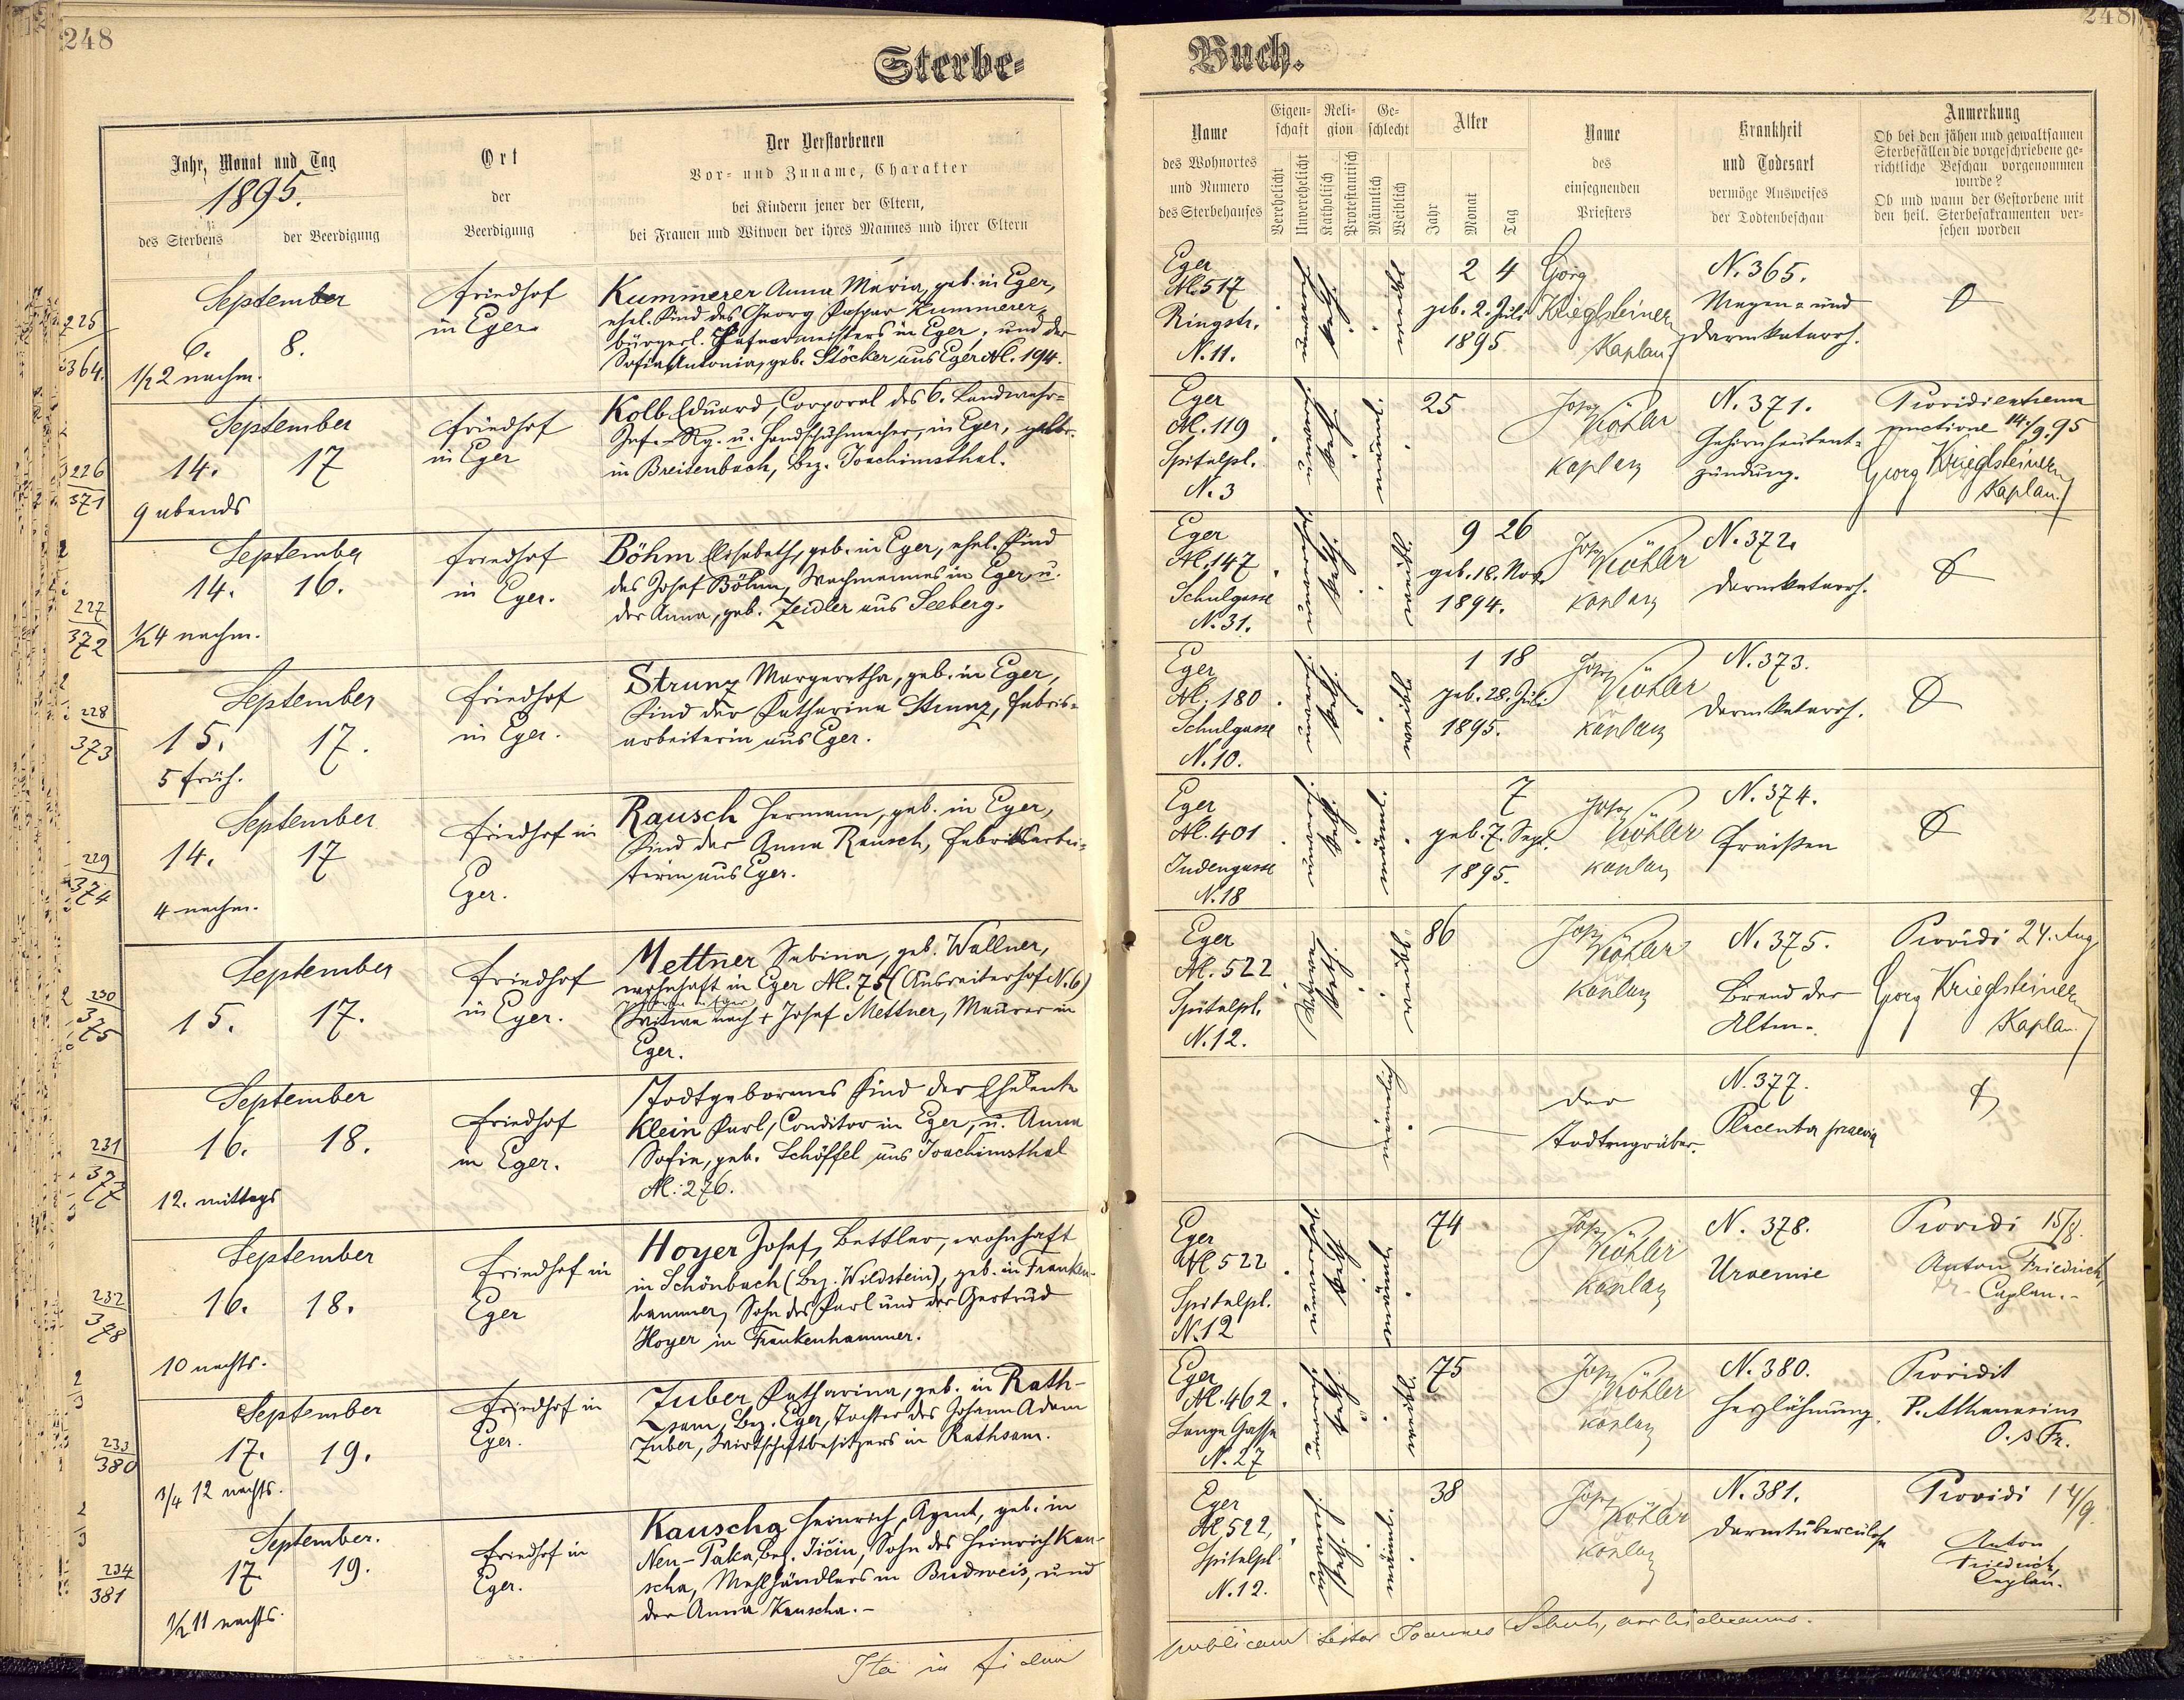 248
Sterbe-
Jahr, Monat und Tag
1895.
des Sterbens
der Beerdigung
Ort
der
Beerdigung
Der Verstorbenen
Vor- und Zuname, Charakter
bei Kindern jener der Eltern,
bei Frauen und Witwen der ihres Mannes und ihrer Eltern
225
364.
September
6. 8.
1/2 2 nachm.
Friedhof
in Eger
Kummerer Anna Maria, geb. in Eger,
ehel. Kind des Georg Kaspar Kummerer,
bürgerl. Hafnermeisters in Eger, und der
Sofia Antonia, geb. Stöcker aus Eger N. 194.
226
371
September
14. 17
9 abends
Friedhof
in Eger
Kolb Eduard, Corporal des 6. Landwehr-
Inf.-Rg. u. Handschuhmacher, in Eger, gebr.
in Breitenbach, Bez. Joachimsthal.
227
372
September
14. 16.
1/2 4 nachm.
Friedhof
in Eger.
Böhm Elisabeth, geb. in Eger, ehel. Kind
des Josef Böhm, Wachmannes in Eger, u.
der Anna, geb. Zeidler aus Seeberg.
228
373
September
15. 17.
5 früh.
Friedhof
in Eger.
Strunz Margaretha, geb. in Eger,
Kind der Katharina Strunz, Fabriks-
arbeiterin aus Eger.
229
374
September
14. 17
4 nachm.
Friedhof in
Eger.
Rausch Hermann, geb. in Eger,
Kind der Anna Rausch, Fabriksarbei-
terin aus Eger.
230
375
September
15. 17.
Friedhof
in Eger.
Mettner Sabina, geb. Wallner,
wohnhaft in Eger N. 75 (Ausreiterhof N. 6)
geboren in Eger
Witwe nach + Josef Mettner, Maurer in
Eger.
231
377
September
16. 18.
12. mittags
Friedhof
in Eger.
Todtgeborenes Kind der Eheleute
Klein Karl, Conditor in Eger, u. Anna
Sofie, geb. Schöffel aus Joachimsthal
N. 276.
232
378
September
16. 18.
10 nachts.
Friedhof in
Eger
Hoyer Josef, Bettler, wohnhaft
in Schönbach (Bez. Wildstein), geb. in Franken-
hammer, Sohn des Karl und der Gertrud
Hoyer in Frankenhammer.
233
380
September
17. 19.
3/4 12 nachts.
Friedhof in
Eger.
Zuber Katharina, geb. in Rath-
sam, Bez. Eger, Tochter des Johann Adam
Zuber, Wirtschaftbesitzers in Rathsam.
234
381
September.
17 19.
1/2 11 nachts.
Friedhof in
Eger.
Kauscha Heinrich, Agent, geb. in
Neu-Paka, Bez. Jičin, Sohn des Heinrich Kau-
scha, Mehlhändlers in Budweis, und
der Anna Kauscha.-
Ita in fidem
248
Buch.
Name
des Wohnortes
und Numero
des Sterbehauses
Eigen-
schaft
Verehelicht
Unverehelicht
Reli-
gion
Katholisch
Protestantisch
Ge-
schlecht
Männlich
Weiblich
Alter
Jahr
Monat
Tag
Name
des
einsegnenden
Priesters
Krankheit
und Todesart
vermöge Ausweises
der Todtenbeschau
Anmerkung
Ob bei den jähen und gewaltsamen
Sterbefällen die vorgeschriebene ge-
richtliche Beschau vorgenommen
wurde?
Ob und wann der Gestorbene mit
den heil. Sterbesakramenten ver-
sehen worden
Eger
N. 517
Ringstr.
N. 11.
kath.
2 4
geb. 2. Juli
1895
Georg
Krieglsteiner
Kaplan
N. 365.
Magen- und
Darmkatarrh.
Eger
N. 119
Spitalpl.
N. 3
kath.
männl.
25
Josef
Köhler
Kaplan
N. 371.
Gehirnhautent-
zündung.
Providi extrema
unctione 14./9. 95
Georg Krieglsteiner
Kaplan
Eger
N. 147
Schulgasse
N. 31.
kath.
weibl.
9 26
geb. 18. Nov.
1894.
Josef
Köhler
Kaplan
N. 372.
Darmkatarrh.
Eger
N. 180
Schulgasse
N. 10.
kath.
weibl.
1 18
geb. 28. Juli
1895.
Josef
Köhler
Kaplan
N. 373.
Darmkatarrh.
Eger
N. 401
Judengasse
N. 18
kath.
männl.
7
geb. 7. Sept.
1895.
Josef
Köhler
Kaplan
N. 374.
Fraißen
Eger
N. 522
Spitalpl.
N. 12.
Witwe
kath.
weibl.
86
Josef
Köhler
Kaplan
N. 375.
Brand der
Alten.
Providi 24. Aug.
Georg Krieglsteiner
Kaplan
männlich
Der
Todtengräber.
N. 377.
Placenta praevia
Eger
N. 522
Spitalpl.
N. 12
kath.
männl.
74
Josef
Köhler
Kaplan
N. 378.
Uraemie
Providi 15/9.
Anton Friedrich,
Caplan.-
Eger
N. 462
Lange Gasse
N. 27
kath.
weibl.
75
Josef
Köhler
Kaplan
N. 380.
Herzlähmung.
Providit
P. Athanasius
O. s Fr.
Eger
N. 522,
Spitalpl.
N. 12.
kath.
männl.
38
Josef
Köhler
Kaplan
N. 381.
Darmtuberculose
Providi 14/9.
Anton
Friedrich,
Caplan.
publicam testor Joannes